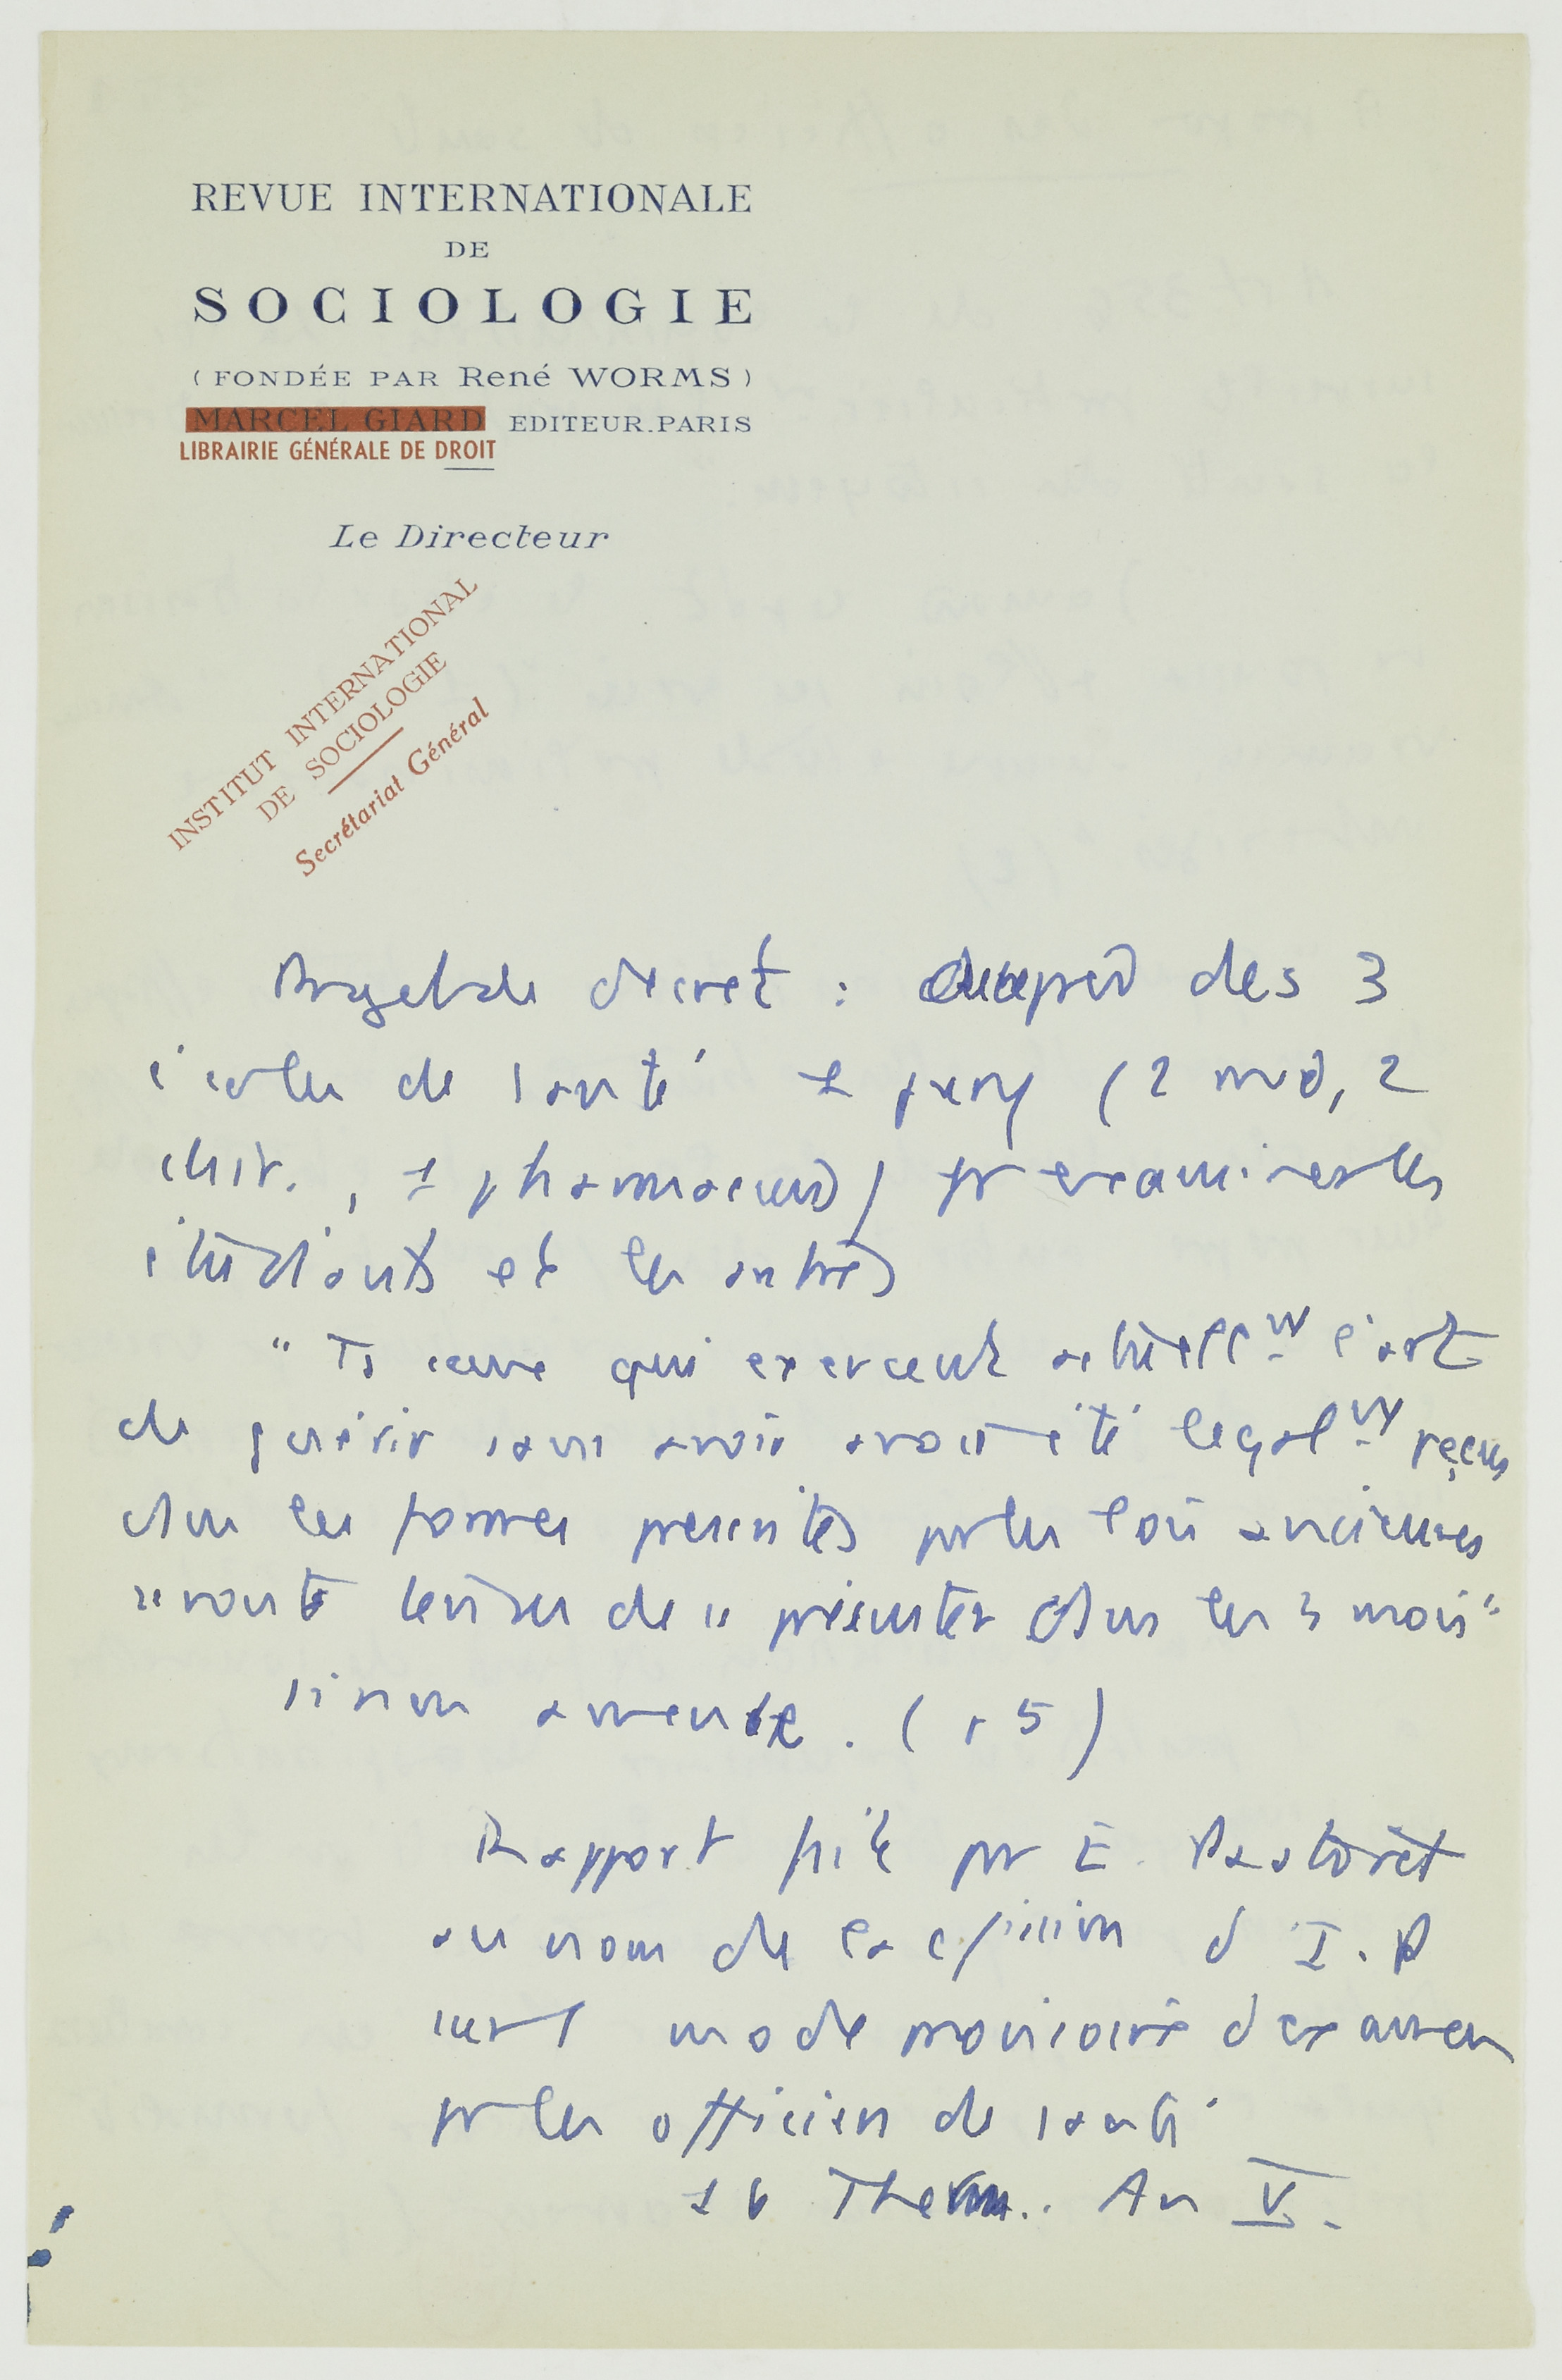 REVUE INTERNATIONALE
DE
SOCIOLOGIE
(FONDÉE PAR René WORMS)
MARCEL GIARD EDITEUR.PARIS
LIBRAIRIE GÉNÉRALE DE DROIT
Le Directeur
INSTITUT INTERNATIONAL
DE SOCIOLOGIE
Secrétariat Général
Projet de decret : auprès des 3
écoles de santé 1 jury (2 med, 2
chir., 1 pharmacien) pr examiner les
étudiants et les autres
" Ts ceux qui exercent actuellmt l'art
de guérir sans avoir été legalmt reçus
dans les formes prescrites par les lois anciennes
seront tenus de se présenter dans les 3 mois"
sinon amende. (p 5)
Rapport fait par E. Pastoret
au nom de la cission d I.P
sur l mode provisoire d'examen
pr les officiers de santé
16 Therm.. An V.